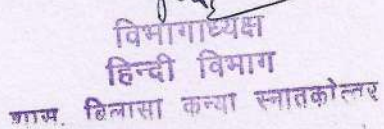 विभागाध्यक्ष
हिन्दी विभाग
शास. बिलासा कन्या स्नातकोत्तर